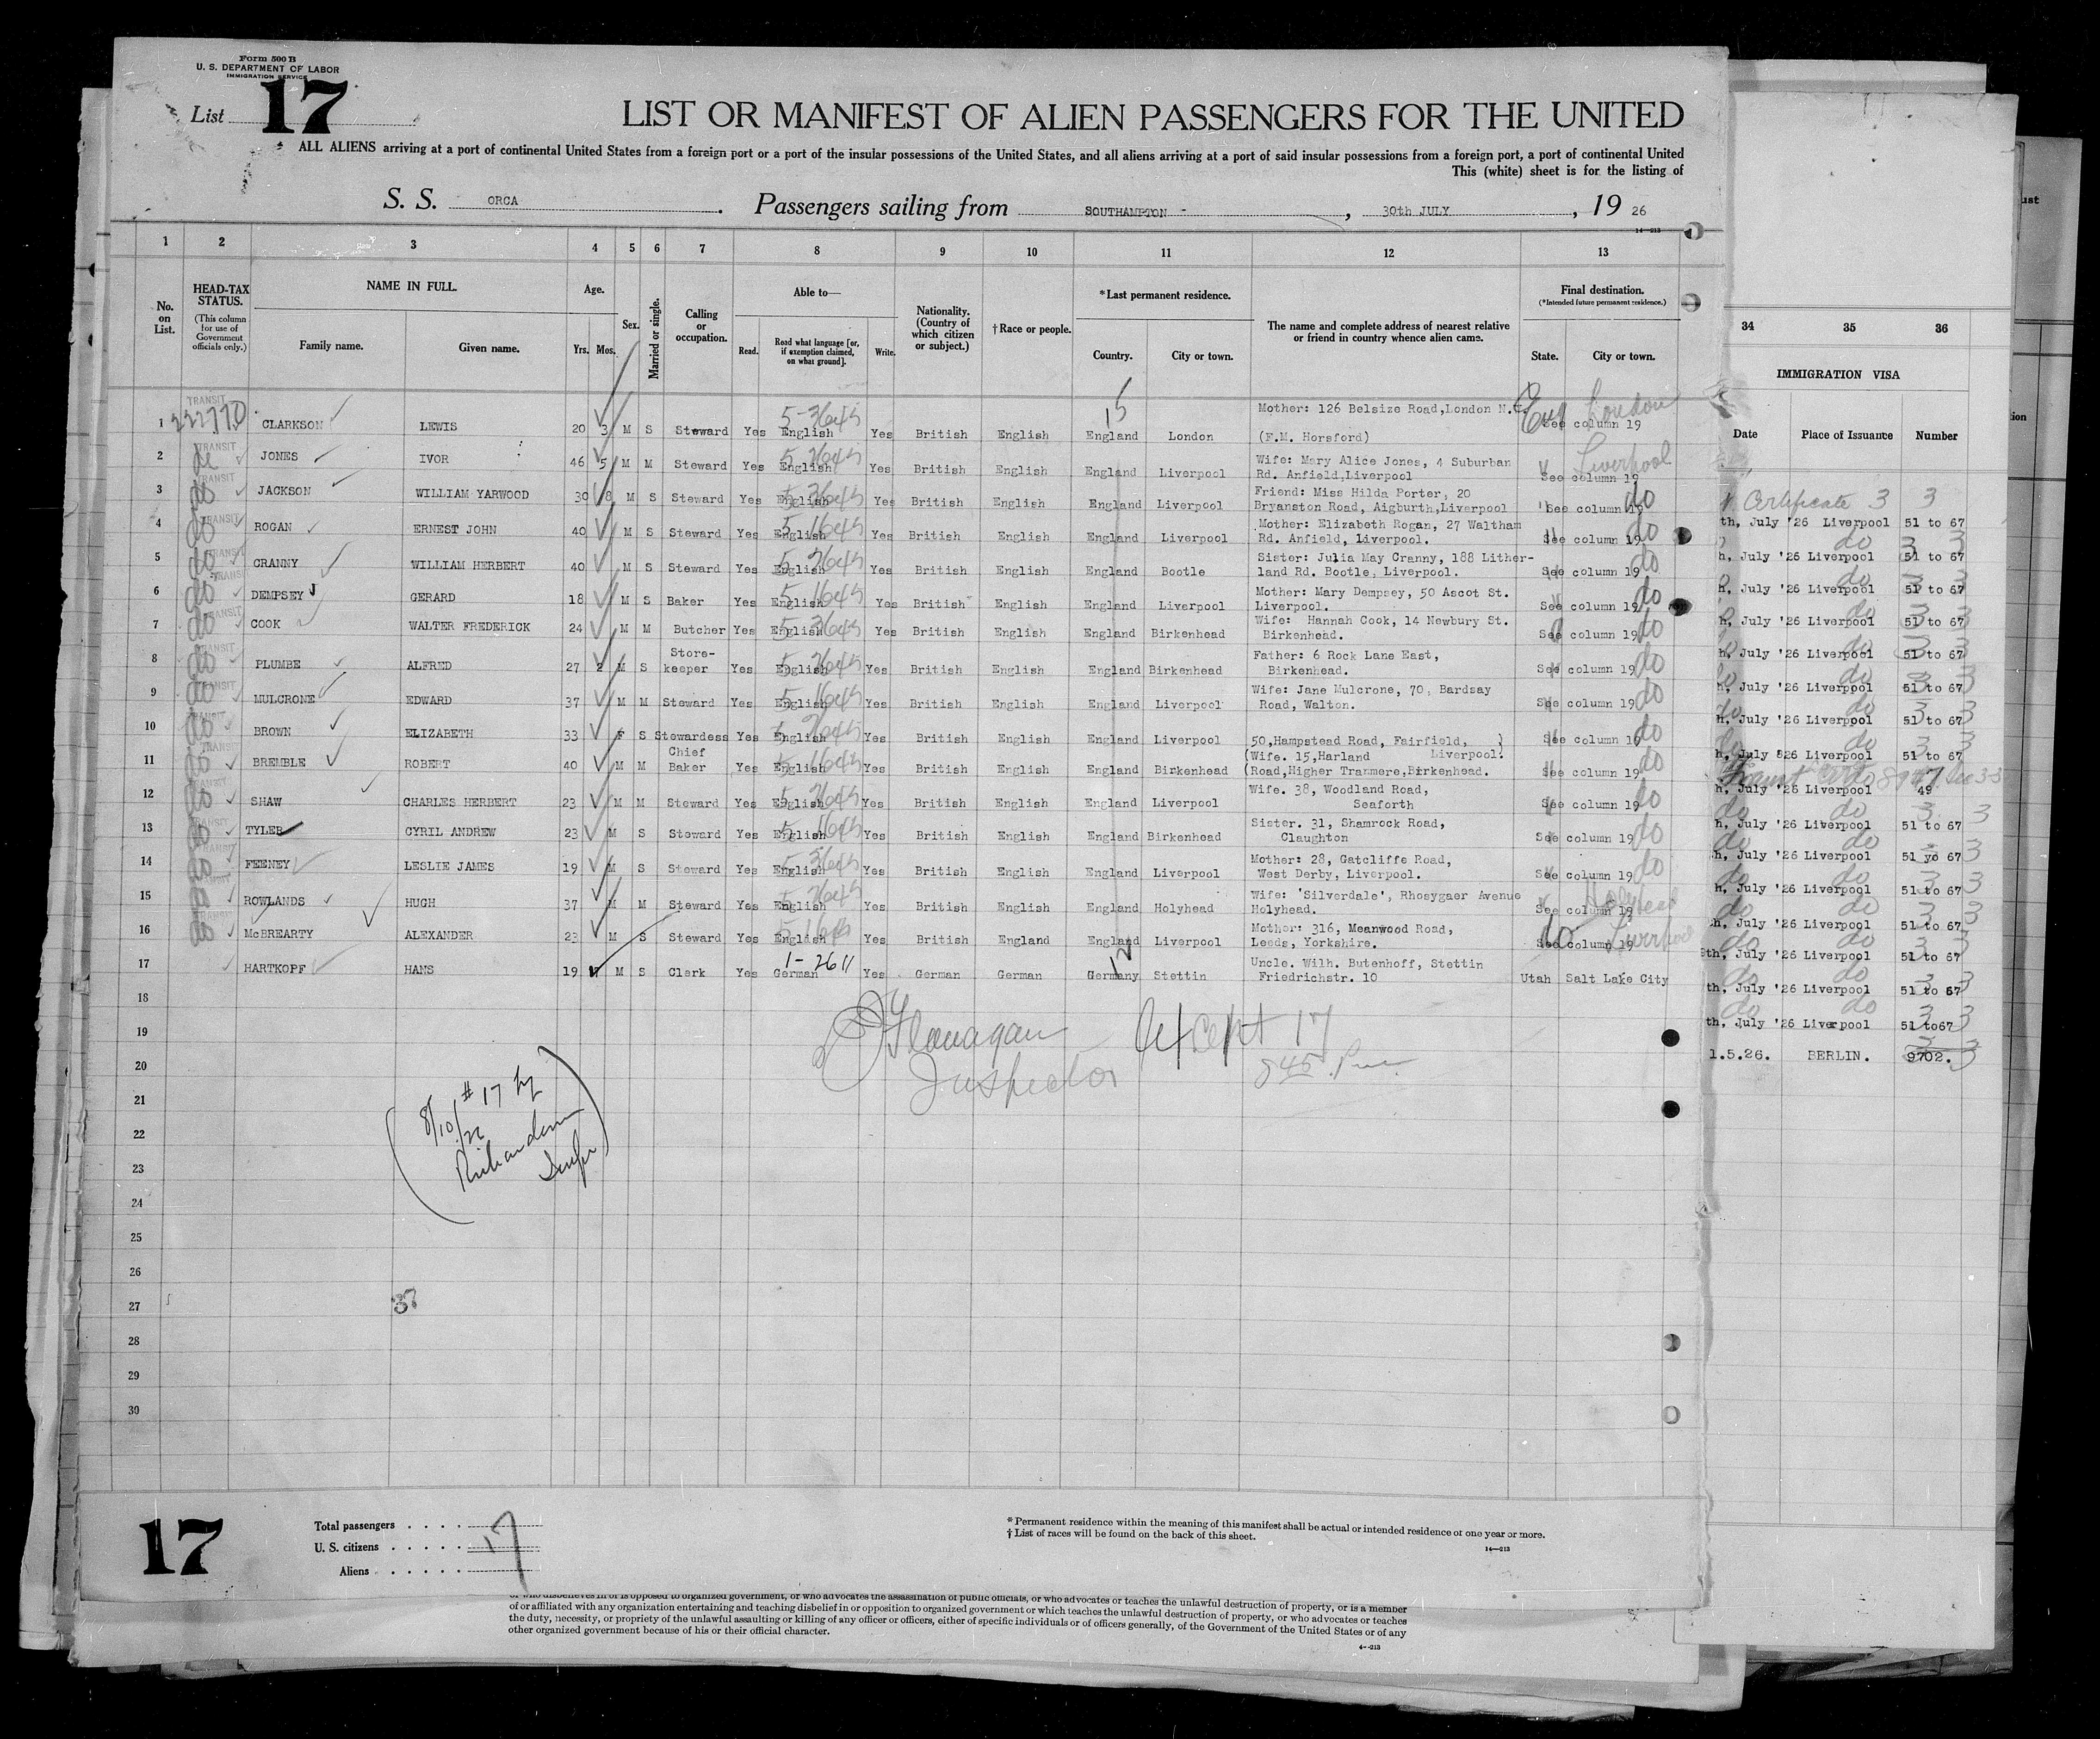 Form 500 B
U. S. DEPARTMENT OF LABOR
IMMIGRATION SERVICE
List 17
LIST OR MANIFEST OF ALIEN PASSENGERS FOR THE UNITED
ALL ALIENS arriving at a port of continental United States from a foreign port or a port of the insular possessions of the United States, and all aliens arriving at a port of said insular possessions from a foreign port, a port of continental United
This (white) sheet is for the listing of
S. S. ORCA. Passengers sailing from SOUTHAMPTON - , 30th JULY, 19 26
14—213
1 2 3 4 5 6 7 8 9 10 11 12 13
No. on List. HEAD-TAX STATUS. (This column for use of Government officials only.) NAME IN FULL. Family name. Given name. Age. Yrs. Mos. Sex. Married or single. Calling or occupation. Able to— Read. Read what language [or, if exemption claimed, on what ground]. Write. Nationality. (Country of which citizen or subject.) †Race or people. *Last permanent residence. Country. City or town. The name and complete address of nearest relative or friend in country whence alien came. Final destination. (*Intended future permanent residence.) State. City or town.
34 35 36
IMMIGRATION VISA
Date Place of Issuance Number
TRANSIT
London
Mother: 126 Belsize Road,London N.
1 CLARKSON LEWIS 20 3 M S Steward Yes English Yes British English England London (F.M. Horsford) See column 19
TRANSIT
Liverpool
2 JONES IVOR 46 5 M M Steward Yes English Yes British English England Liverpool Wife: Mary Alice Jones, 4 Suburban
Rd. Anfield,Liverpool See column 19
TRANSIT
3 JACKSON WILLIAM YARWOOD 30 8 M S Steward Yes English Yes British English England Liverpool Friend: Miss Hilda Porter, 20
Bryanston Road, Aigburth,Liverpool See column 19 do
TRANSIT
4 ROGAN ERNEST JOHN 40 M S Steward Yes English Yes British English England Liverpool Mother: Elizabeth Rogan, 27 Waltham
Rd. Anfield, Liverpool. See column 19 do
TRANSIT
5 CRANNY WILLIAM HERBERT 40 M S Steward Yes English Yes British English England Bootle Sister: Julia May Cranny, 188 Lither-
land Rd. Bootle, Liverpool. See column 19 do
TRANSIT
6 DEMPSEY GERARD 18 M S Baker Yes English Yes British English England Liverpool Mother: Mary Dempsey, 50 Ascot St.
Liverpool. See column 19 do
TRANSIT
7 COOK WALTER FREDERICK 24 M M Butcher Yes English Yes British English England Birkenhead Wife: Hannah Cook, 14 Newbury St.
Birkenhead. See column 19 do
TRANSIT
8 PLUMBE ALFRED 27 2 M S Store-keeper Yes English Yes British English England Birkenhead Father: 6 Rock Lane East,
Birkenhead. See column 19 do
TRANSIT
9 MULCRONE EDWARD 37 M M Steward Yes English Yes British English England Liverpool Wife: Jane Mulcrone, 70, Bardsay
Road, Walton. See column 19 do
TRANSIT
10 BROWN ELIZABETH 33 F S Stewardess Yes English Yes British English England Liverpool 50,Hampstead Road, Fairfield,
Liverpool. See column 19 do
TRANSIT
11 BREMBLE ROBERT 40 M M Chief Baker Yes English Yes British English England Birkenhead (Wife. 15,Harland
(Road,Higher Tranmere,Birkenhead. See column 19 do
TRANSIT
12 SHAW CHARLES HERBERT 23 M M Steward Yes English Yes British English England Liverpool Wife. 38, Woodland Road,
Seaforth See column 19 do
TRANSIT
13 TYLER CYRIL ANDREW 23 M S Steward Yes English Yes British English England Birkenhead Sister. 31, Shamrock Road,
Claughton See column 19 do
TRANSIT
14 FEENEY LESLIE JAMES 19 M S Steward Yes English Yes British English England Liverpool Mother: 28, Gatcliffe Road,
West Derby, Liverpool. See column 19 do
TRANSIT
15 ROWLANDS HUGH 37 M M Steward Yes English Yes British English England Holyhead Wife: 'Silverdale', Rhosygaer Avenue
Holyhead. See column 19 Holyhead
TRANSIT
16 McBREARTY ALEXANDER 23 M S Steward Yes English Yes British England England Liverpool Mother: 316, Meanwood Road,
Leeds, Yorkshire. See column 19 Liverpool
1-2611
17 HARTKOPF HANS 19 M S Clerk Yes German Yes German German Germany Stettin Uncle. Wilh. Butenhoff, Stettin
Friedrichstr. 10 Utah Salt Lake City
18
19
20
21
22
23
24
25
26
27
28
29
30
Flanagan except 17
Inspector 8 45 P.m.
8/10/26 #17 by
Richardson
Inspr
37
Certificate 3 3
th, July '26 Liverpool 51 to 67
h, July '26 Liverpool 51 to 67
h, July '26 Liverpool 51 to 67
h, July '26 Liverpool 51 to 67
h, July '26 Liverpool 51 to 67
h, July '26 Liverpool 51 to 67
h, July '26 Liverpool 51 to 67
h, July 826 Liverpool 51 to 67
h, July '26 Liverpool 49
h, July '26 Liverpool 51 to 67
h, July '26 Liverpool 51 yo 67
h, July '26 Liverpool 51 to 67
h, July '26 Liverpool 51 to 67
9th, July '26 Liverpool 51 to 67
th, July '26 Liverpool 51 to 67
th, July '26 Liverpool 51 to67
1.5.26. BERLIN. 9702.
17
Total passengers . . . . 17
U. S. citizens . . . . .
Aliens . . . . . .
* Permanent residence within the meaning of this manifest shall be actual or intended residence of one year or more.
† List of races will be found on the back of this sheet.
14—213
or who disbelieves in or is opposed to organized government, or who advocates the assassination of public officials, or who advocates or teaches the unlawful destruction of property, or is a member
of or affiliated with any organization entertaining and teaching disbelief in or opposition to organized government or which teaches the unlawful destruction of property, or who advocates or teaches
the duty, necessity, or propriety of the unlawful assaulting or killing of any officer or officers, either of specific individuals or of officers generally, of the Government of the United States or of any
other organized government because of his or their official character.
4—213